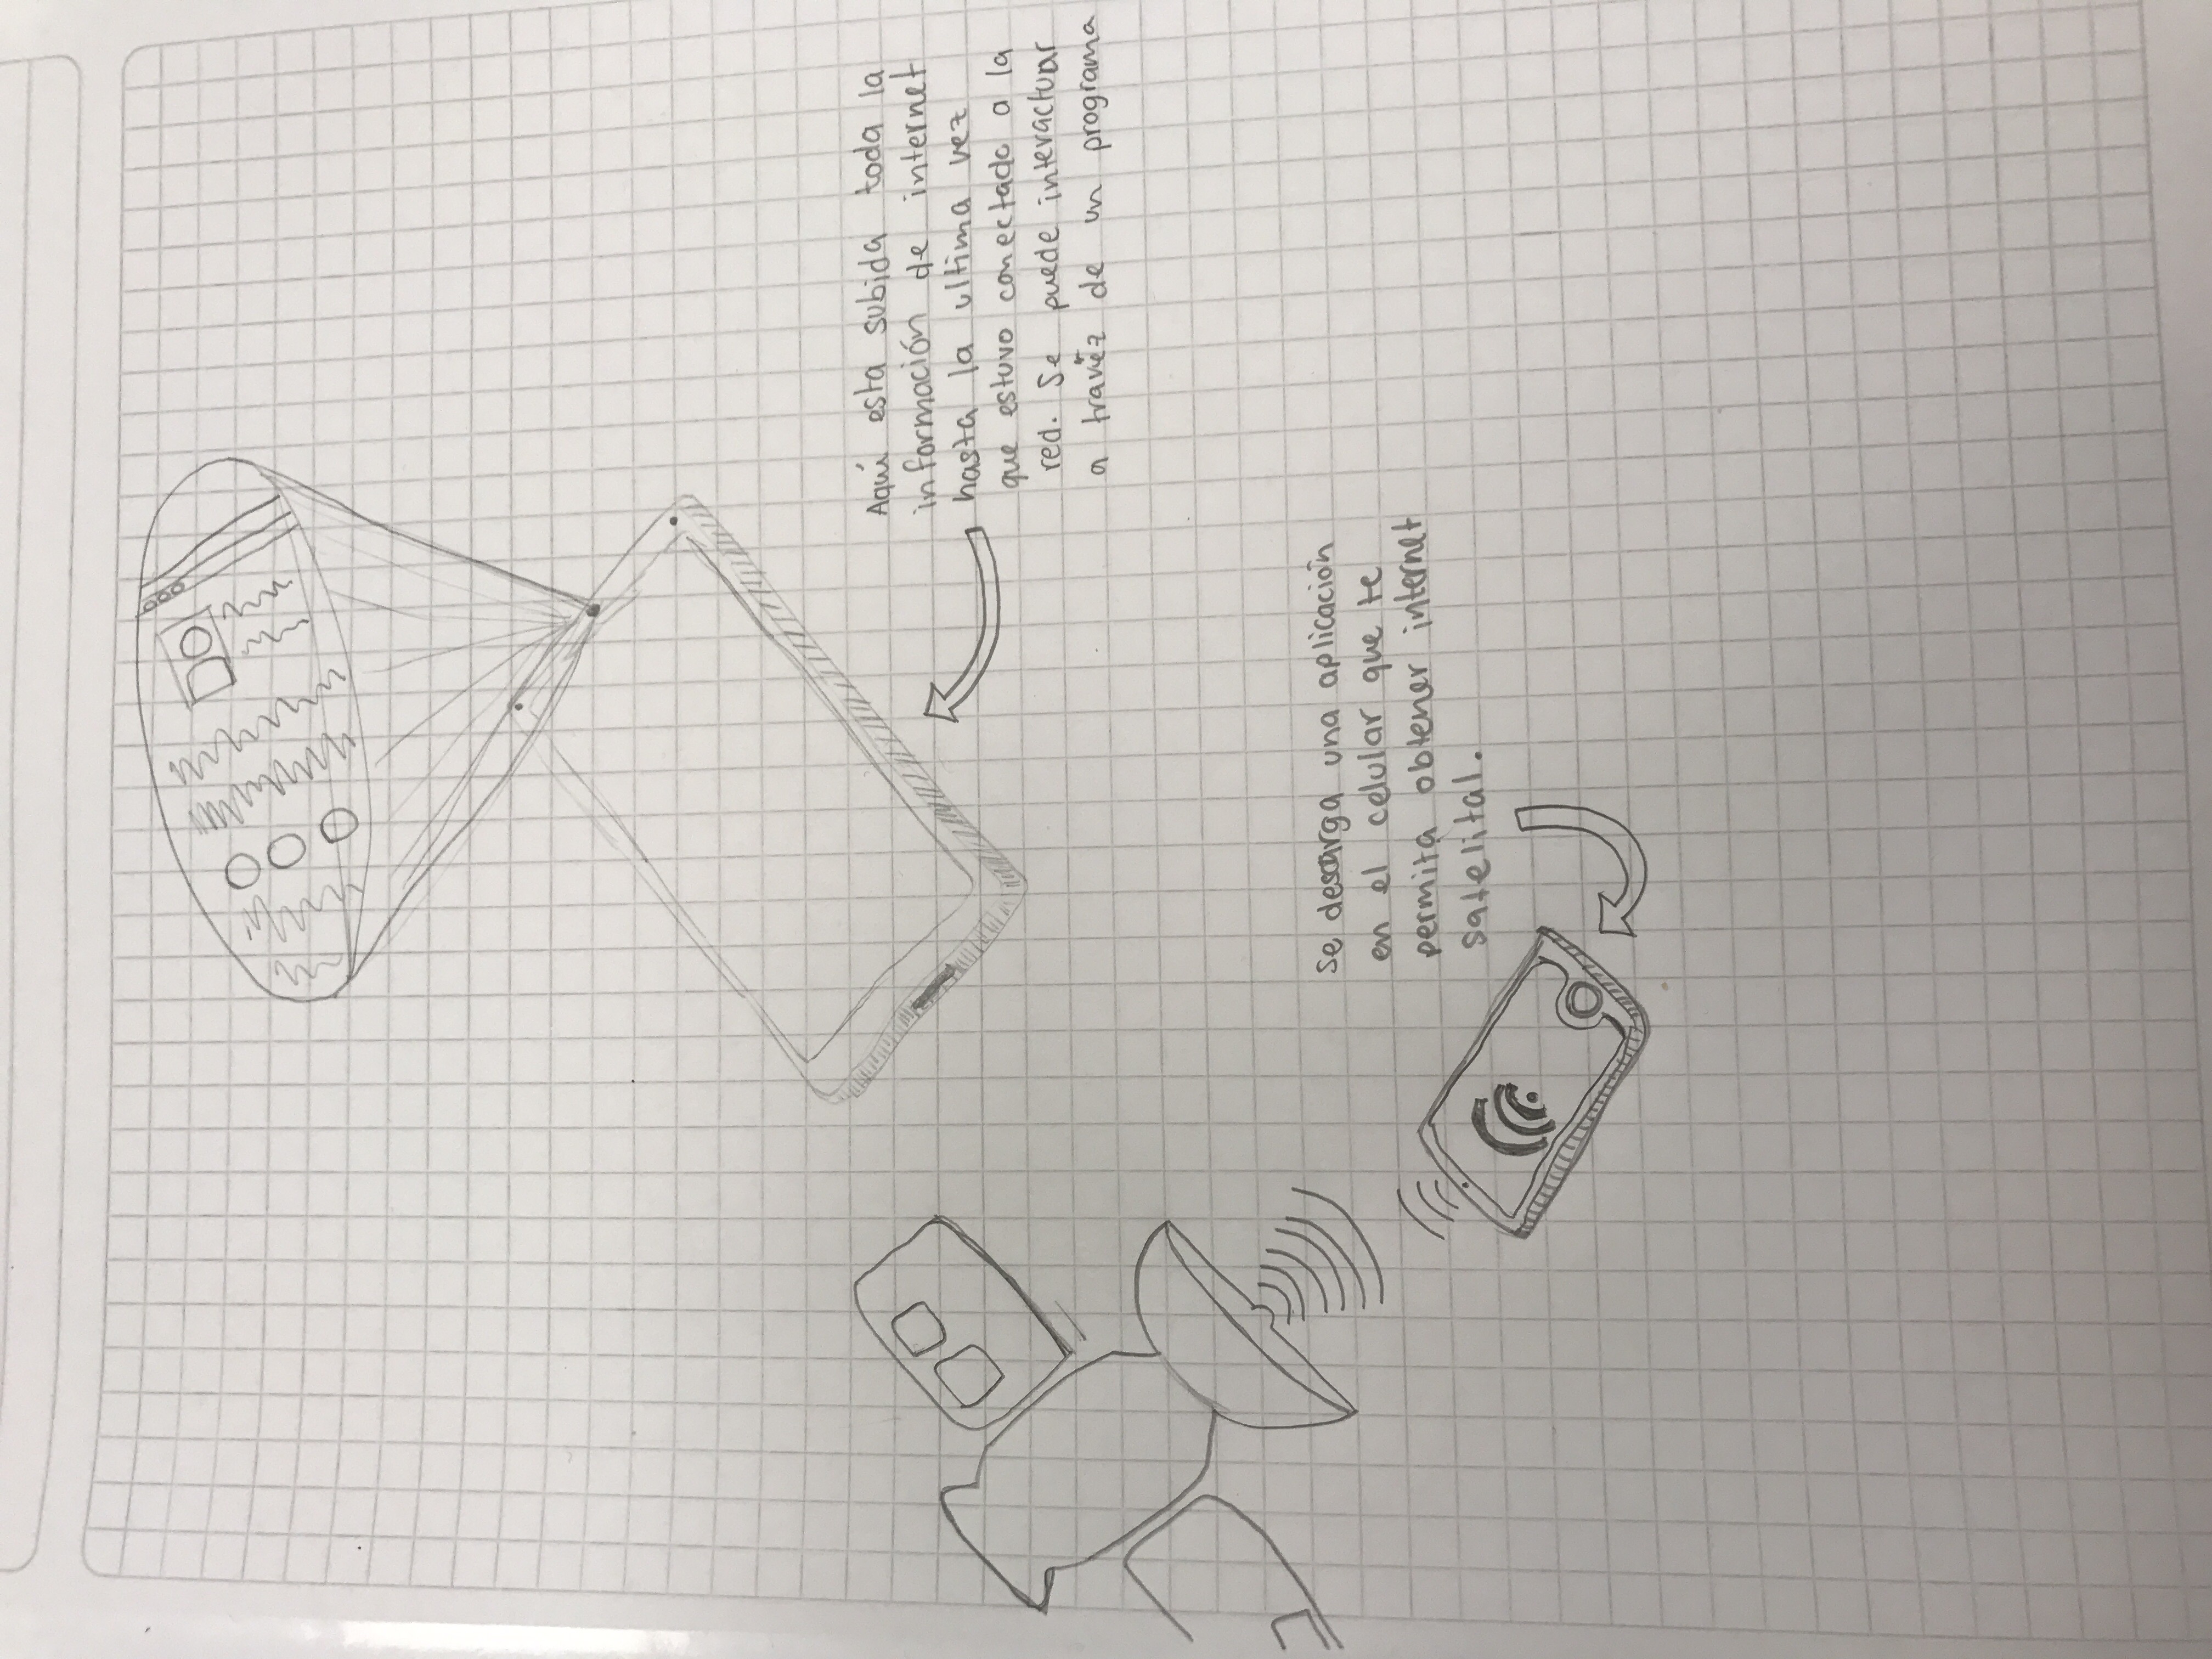 Aquí esta subida toda la
información de internet
hasta la ultima vez
que estuvo conectado a la
red. Se puede interactuar
a travéz de un programa
Se descarga una aplicación
en el celular que te
permita obtener internet
satelital.